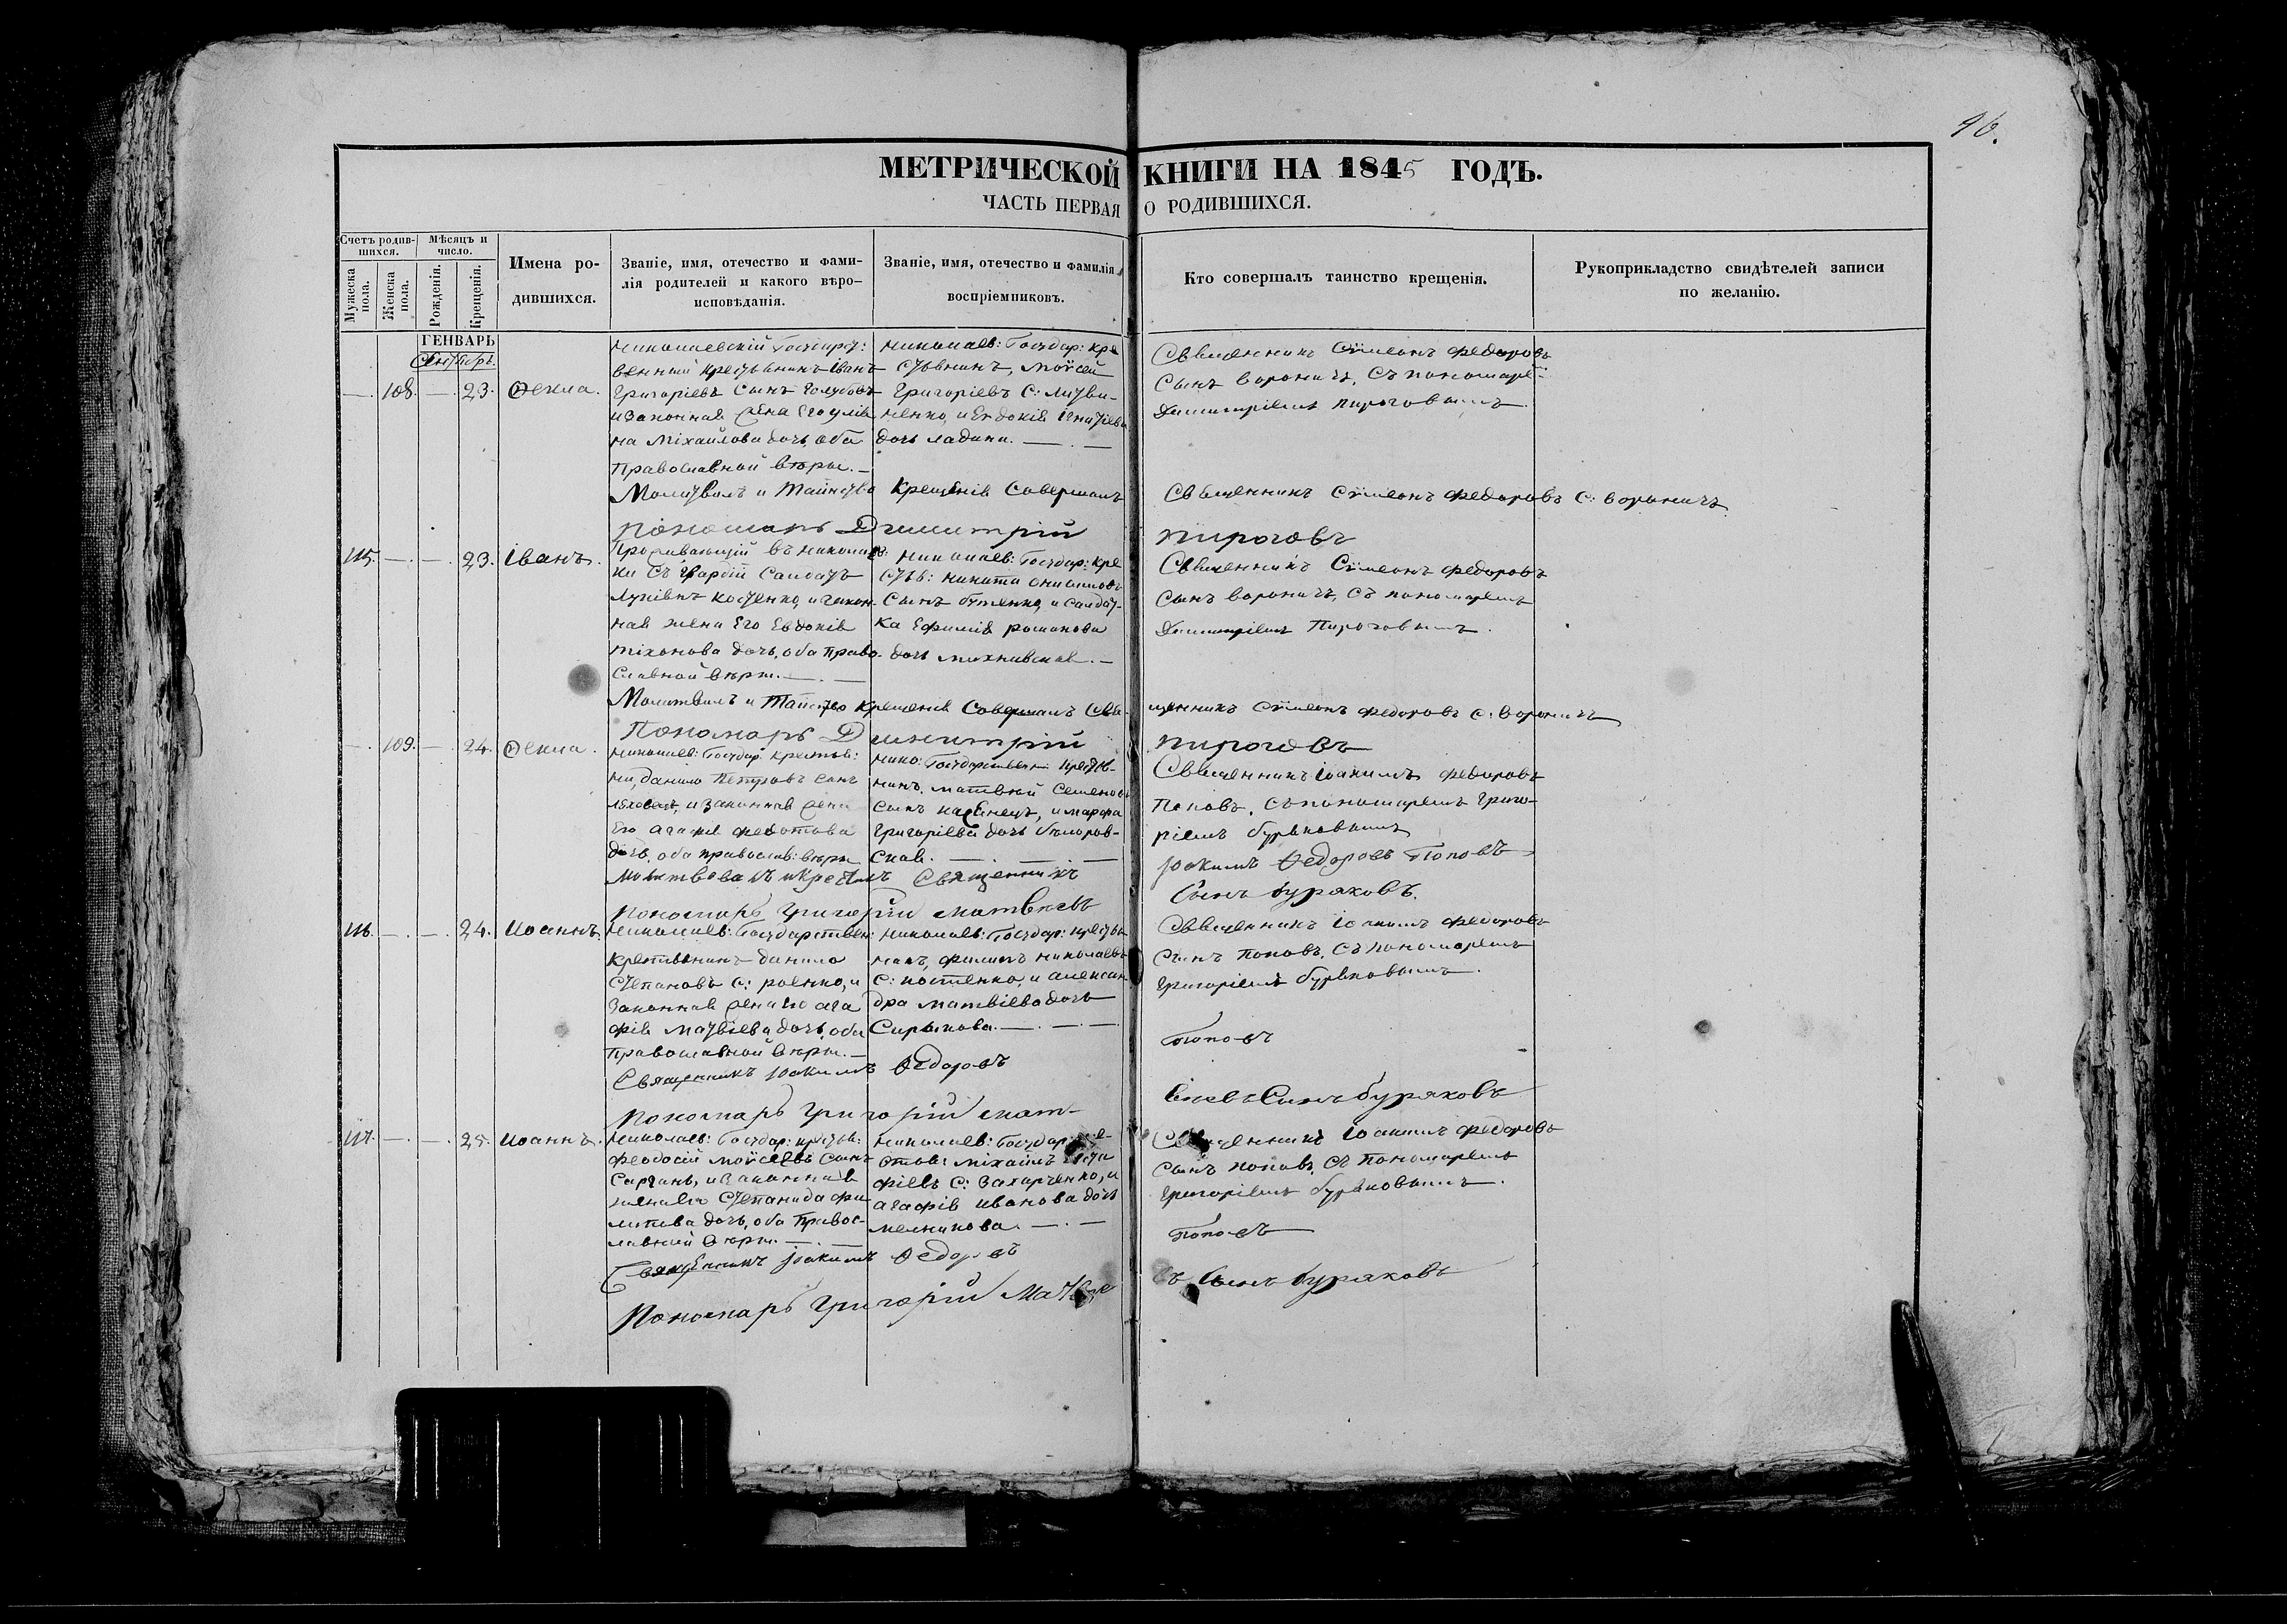 96.
МЕТРИЧЕСКОЙ КНИГИ НА 1845 ГОДЪ.
ЧАСТЬ ПЕРВАЯ О РОДИВШИХСЯ.
Счетъ родив-
шихся.
Мѣсяцъ и
число.
Мужеска
пола.
Женска
пола.
Рожденія.
Крещенія.
Имена ро-
дившихся.
Званіе, имя, отечество и фами-
лія родителей и какого вѣро-
исповѣданія.
Званіе, имя, отечество и фамилія
воспріемниковъ.
Кто совершалъ таинство крещенія.
Рукоприкладство свидѣтелей записи
по желанію.
ГЕНВАРЬ
—. 108. —. 23. Ѳекла.
Николаевскій Государст:
венный крестьянинъ Іванъ
Григоріевъ сынъ Голубовъ
и законная жена его улія
на Міхайлова дочь, оба
Православной вѣры.—
Николаев: Государ: кре
стьянинъ, Моѵсей
Григоріевъ С: Литви-
ненко, и Евдокія Ігнатіева
дочь ладина. —.—
Священникъ Сѵмеонъ Федоровъ
Сынъ Вороничъ, Съ пономаре-
Димитріемъ Пироговымъ.
Молитвилъ и Таинство Крещенія Совершалъ Священникъ Сѵмеонъ Федоровъ С: Вороничъ
Пономарь Димитрій Пироговъ
115. —. —. 23. Іванъ.
Проживающій въ Николаев:
Сынъ Вороничъ, Съ пономаремъ
Димитріемъ Пироговымъ.
Николаев: Государ: кре
стья: Никита
Сынъ бутенко, и солдат-
ка Ефимія романова
ная жена Его Евдокія
тіханова дочь, оба Право-
славной вѣры.—.—
Священникъ Сѵмеонъ Федоровъ
Молитвилъ и Таинство Крещенія Совершалъ Свя-
щенникъ Сѵмеонъ Федоровъ С: Вороничъ
Пономарь Димитрій Пироговъ
—. 109. —. 24. Ѳекла.
Николаев: Государ: крестья:
нин, данило Петровъ сынъ
и законная жена
Его Агафія федотова
дочь, оба православ: вѣры
Нико: Государственн: крестья-
нинъ, матвѣй Семеновъ
и марфа
Григоріева дочь
Священникъ Іоакимъ Федоровъ
Поповъ, Съ пономаремъ Григо-
ріемъ буряковымъ
Молитвовалъ и крестилъ Священникъ Іоакимъ Ѳедоровъ Поповъ
Пономарь Григорій матвѣевъ Сынъ буряковъ.
116. —. —. 24. Иоаннъ.
Николаев: Государствен:
Крестьянинъ данило
Степановъ С: роенко, и
Законная жена его ага
фія Матвіева дочь, оба
Православной вѣры.—
Николаев: Государ: крестья
нинъ, филипъ николаевъ
С: костенко, и алексан
дра матвіева дочь
Сирыкова.—.—.—
Священникъ Іоакимъ Федоровъ
Сынъ Поповъ, Съ пономаремъ
Григоріемъ буряковымъ.
Священникъ Іоакимъ Ѳедоровъ Поповъ
Пономарь Григорій мат-
віевъ Сынъ буряковъ
117. —. —. 25. Иоаннъ.
Николаев: Государ: крестья:
Феодосій моѵсеевъ Сынъ
Сарганъ, и законная
жена его Степанида фи
липова дочь, оба Правос-
лавной вѣры.—.—
Николаев: Государ: кре-
стья: міхайлъ
фіевъ С: Захарченко, и
агафія иванова дочь
мелникова.—.—
Священникъ Іоакимъ Федоровъ
Сынъ поповъ, Съ пономаремъ
Григоріемъ буряковымъ.
Священникъ Іоакимъ Ѳедоровъ Поповъ
Пономарь Григорій Матвѣе
въ Сынъ буряковъ